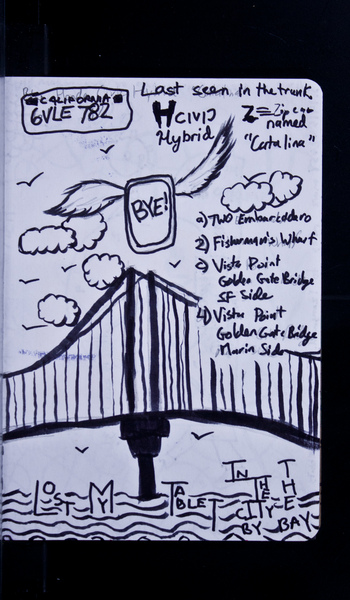 Last seen in the trunk
CALIFORNIA
6VLE 782
H CIVIC
Hybrid
Z = Zipcar
named
"Catalina"
BYE!
1) Two Embarcadero
2) Fisherman's Wharf
3) Vista Point
Golden Gate Bridge
SF Side
4) Vista Point
Golden Gate Bridge
Marin Side
LOST MY TABLET
IN THE CITY BY THE BAY